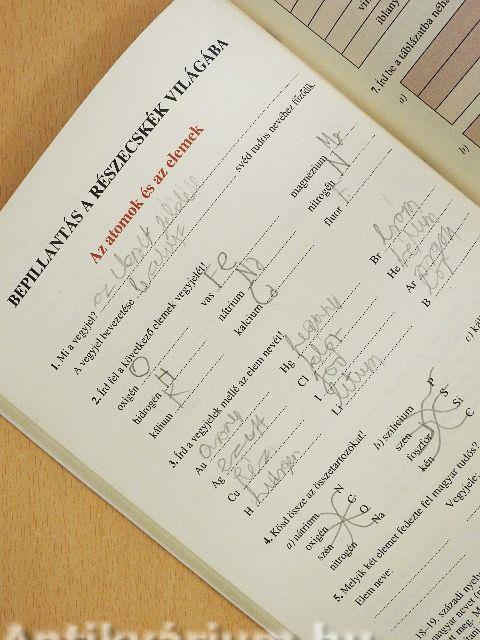 BEPILLANTÁS A RÉSZECSKÉK VILÁGÁBA
Az atomok és az elemek
1. Mi a vegyjel?
A vegyjel bevezetése svéd tudós nevéhez fűződik.
2. Írd fel a következő elemek vegyjelét!
oxigén O vas Fe magnézium Mg
hidrogén H nátrium Na nitrogén N
kálium K kalcium Ca fluor F
3. Írd a vegyjelek mellé az elem nevét!
Au arany Hg Br bróm
Ag ezüst Cl klór He
Cu Réz I jód Ar Argon
H hidrogén Li lítium B bór
4. Kösd össze az összetartozókat!
a) nátrium N b) szilícium P
oxigén C szén S
szén O foszfor Si
nitrogén Na kén C
5. Melyik két elemet fedezte fel magyar tudós?
Elem neve: Vegyjele:
7. Írd be a táblázatba
a)
b)
Antikvárium.hu